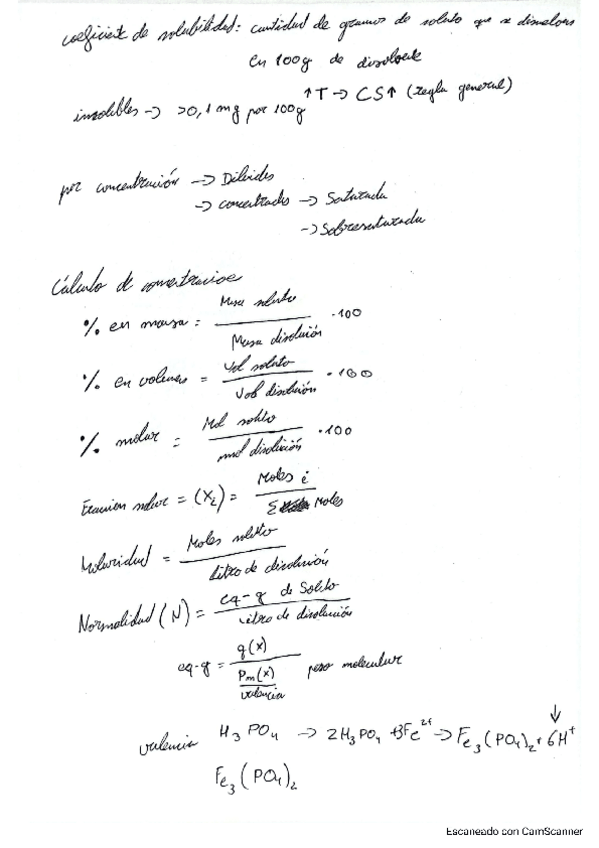 coeficiente de solubilidad: cantidad de gramos de soluto que se disuelven
en 100g de disolvente
insolubles -> >0,1 mg por 100g ↑T -> CS↑ (regla general)
por concentración -> Diluidas
-> concentradas -> Saturada
-> Sobresaturada
Cálculo de concentracione
% en masa = Masa soluto / Masa disolución · 100
% en volumen = Vol soluto / Vol disolución · 100
% molar = Mol soluto / mol disolución · 100
Fraccion molar = (Xi) = Moles i / Σ Moles
Molaridad = Moles soluto / Litro de disolución
Normalidad (N) = eq-g de Soluto / Litro de disolución
eq-g = g(x) / Pm(x) / valencia peso molecular
valencia H3PO4 -> 2H3PO4 + 3Fe2+ -> Fe3(PO4)2 + 6H+
↓
Fe3(PO4)2
Escaneado con CamScanner